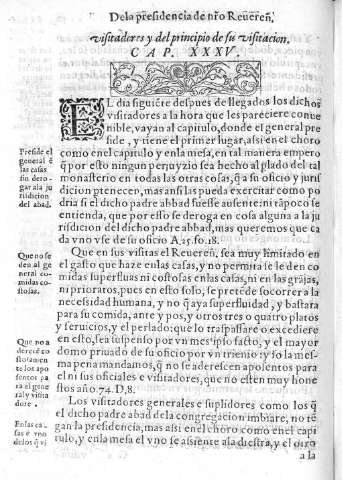 Dela presidencia de nr̃o Reuereñ.
visitadores y del principio de su visitacion.
CAP. XXXV.
EL dia siguiẽte despues de llegados los dichos
visitadores a la hora que les pareciere conue
nible, vayan al capitulo, donde el general pre
side, y tiene el primer lugar, assi en el choro
como en el capitulo y en la mesa, en tal manera empero
q̃ por esto ningun peruyzio sea hecho al p̃lado del tal
monasterio en todas las otras cosas, q̃ a su oficio y juris
diction ptenecen, mas ansi las pueda exercitar como po
dria si el dicho padre abbad fuesse ausente: ni tãpoco se
entienda, que por esto se deroga en cosa alguna a la ju
risdicion del dicho padre abbad, mas queremos que ca
da vno vse de su oficio A.15.fo.18.
Preside el
general ẽ
las casas
sin dero-
gar a la ju
risdicion
del abad.
Que en sus visitas el Reuereñ. sea muy limitado en
el gasto que haze en las casas, y no permita se le den co
midas superfluas ni costosas en las casas, ni en las grãjas,
ni prioratos, pues en esto solo, se pretẽde socorrer a la
necessidad humana, y no q̃ aya superfluidad, y bastara
para su comida, ante y pos, y otros tres o quatro platos
y seruicios, y el perlado que lo traspassare o excediere
en esto, sea suspenso por vn mes ipso facto, y el mayor
domo priuado de su oficio por vn trienio: y so la mes-
ma pena mandamos, q̃ no se aderescen aposentos para
el ni sus oficiales e visitadores, que no esten muy hone
stos año.74.D,8.
Que no se
den al ge
neral co-
midas co-
stosas.
Que no a
derecẽ co
stosamen
te los apo
sentos pa
ra el gene
ral y visita
dore.
Los visitadores generales e suplidores como los q̃
el dicho padre abad de la congregacion imbiare, no tẽ
gan la presidencia, mas assi en el choro como en el capi
tulo, y en la mesa el vno se assiente a la diestra, y el otro
a la
En las ca-
sas ẽ vno
delos q̃ vi